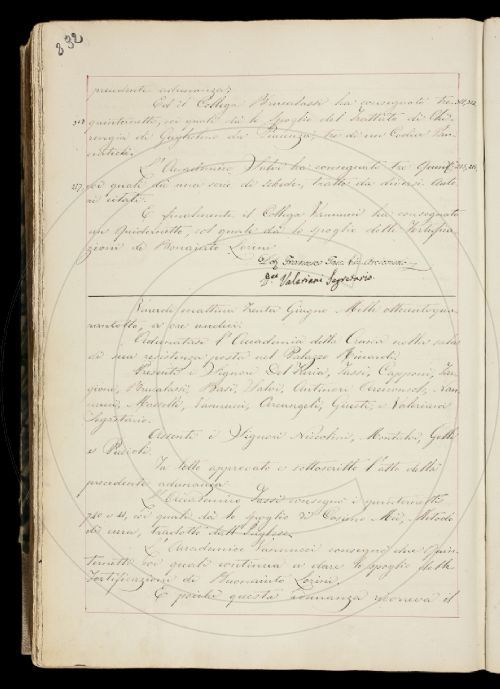 832
precedente adunanza;
Ed il Collega Brucalassi ha consegnato tre
quinternetti, coi quali dà lo spoglio del trattato di Chi-
rurgia di Guglielmo da Piacenza,
L'Accademico Valeri ha consegnati tre
coi quali dà una serie di schede, tratte da diversi testi
citati.
E finalmente il Collega Vannucci ha consegnato
un quinternetto, col quale dà lo spoglio delle Fortifica-
zioni di Bonaiuto Lorini
Valeriani Segretario.
mattina trenta Giugno Mille ottocentoqua-
rantotto, a ore undici.
Adunatasi l'Accademia della Crusca nella sala
di sua residenza posta nel Palazzo Riccardi.
Presenti i Signori Del Furia, Tassi, Capponi,
Brucalassi, Valeri,
Masselli, Vannucci, Arcangeli, Giusti, e Valeriani
Segretario.
Assenti i Signori Niccolini,
e
Fu letto approvato e sottoscritto l'atto della
precedente adunanza.
L'Accademico Tassi consegnò i quinternetti
coi quali dà lo spoglio di Cosimo Mei, Metodo
di cura, tradotto dall'Inglese.
L'Accademico Vannucci consegnò due Quin-
ternetti coi quali continua a dare lo spoglio delle
Fortificazioni di Buonaiuto Lorini.
E poichè questa adunanza doveva il